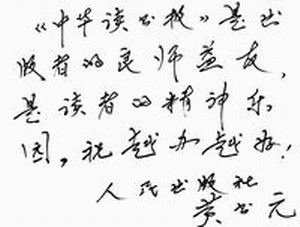 《中华读书报》是出
版者的良师益友，
是读者的精神乐
园，祝越办越好！
人民出版社
黄书元